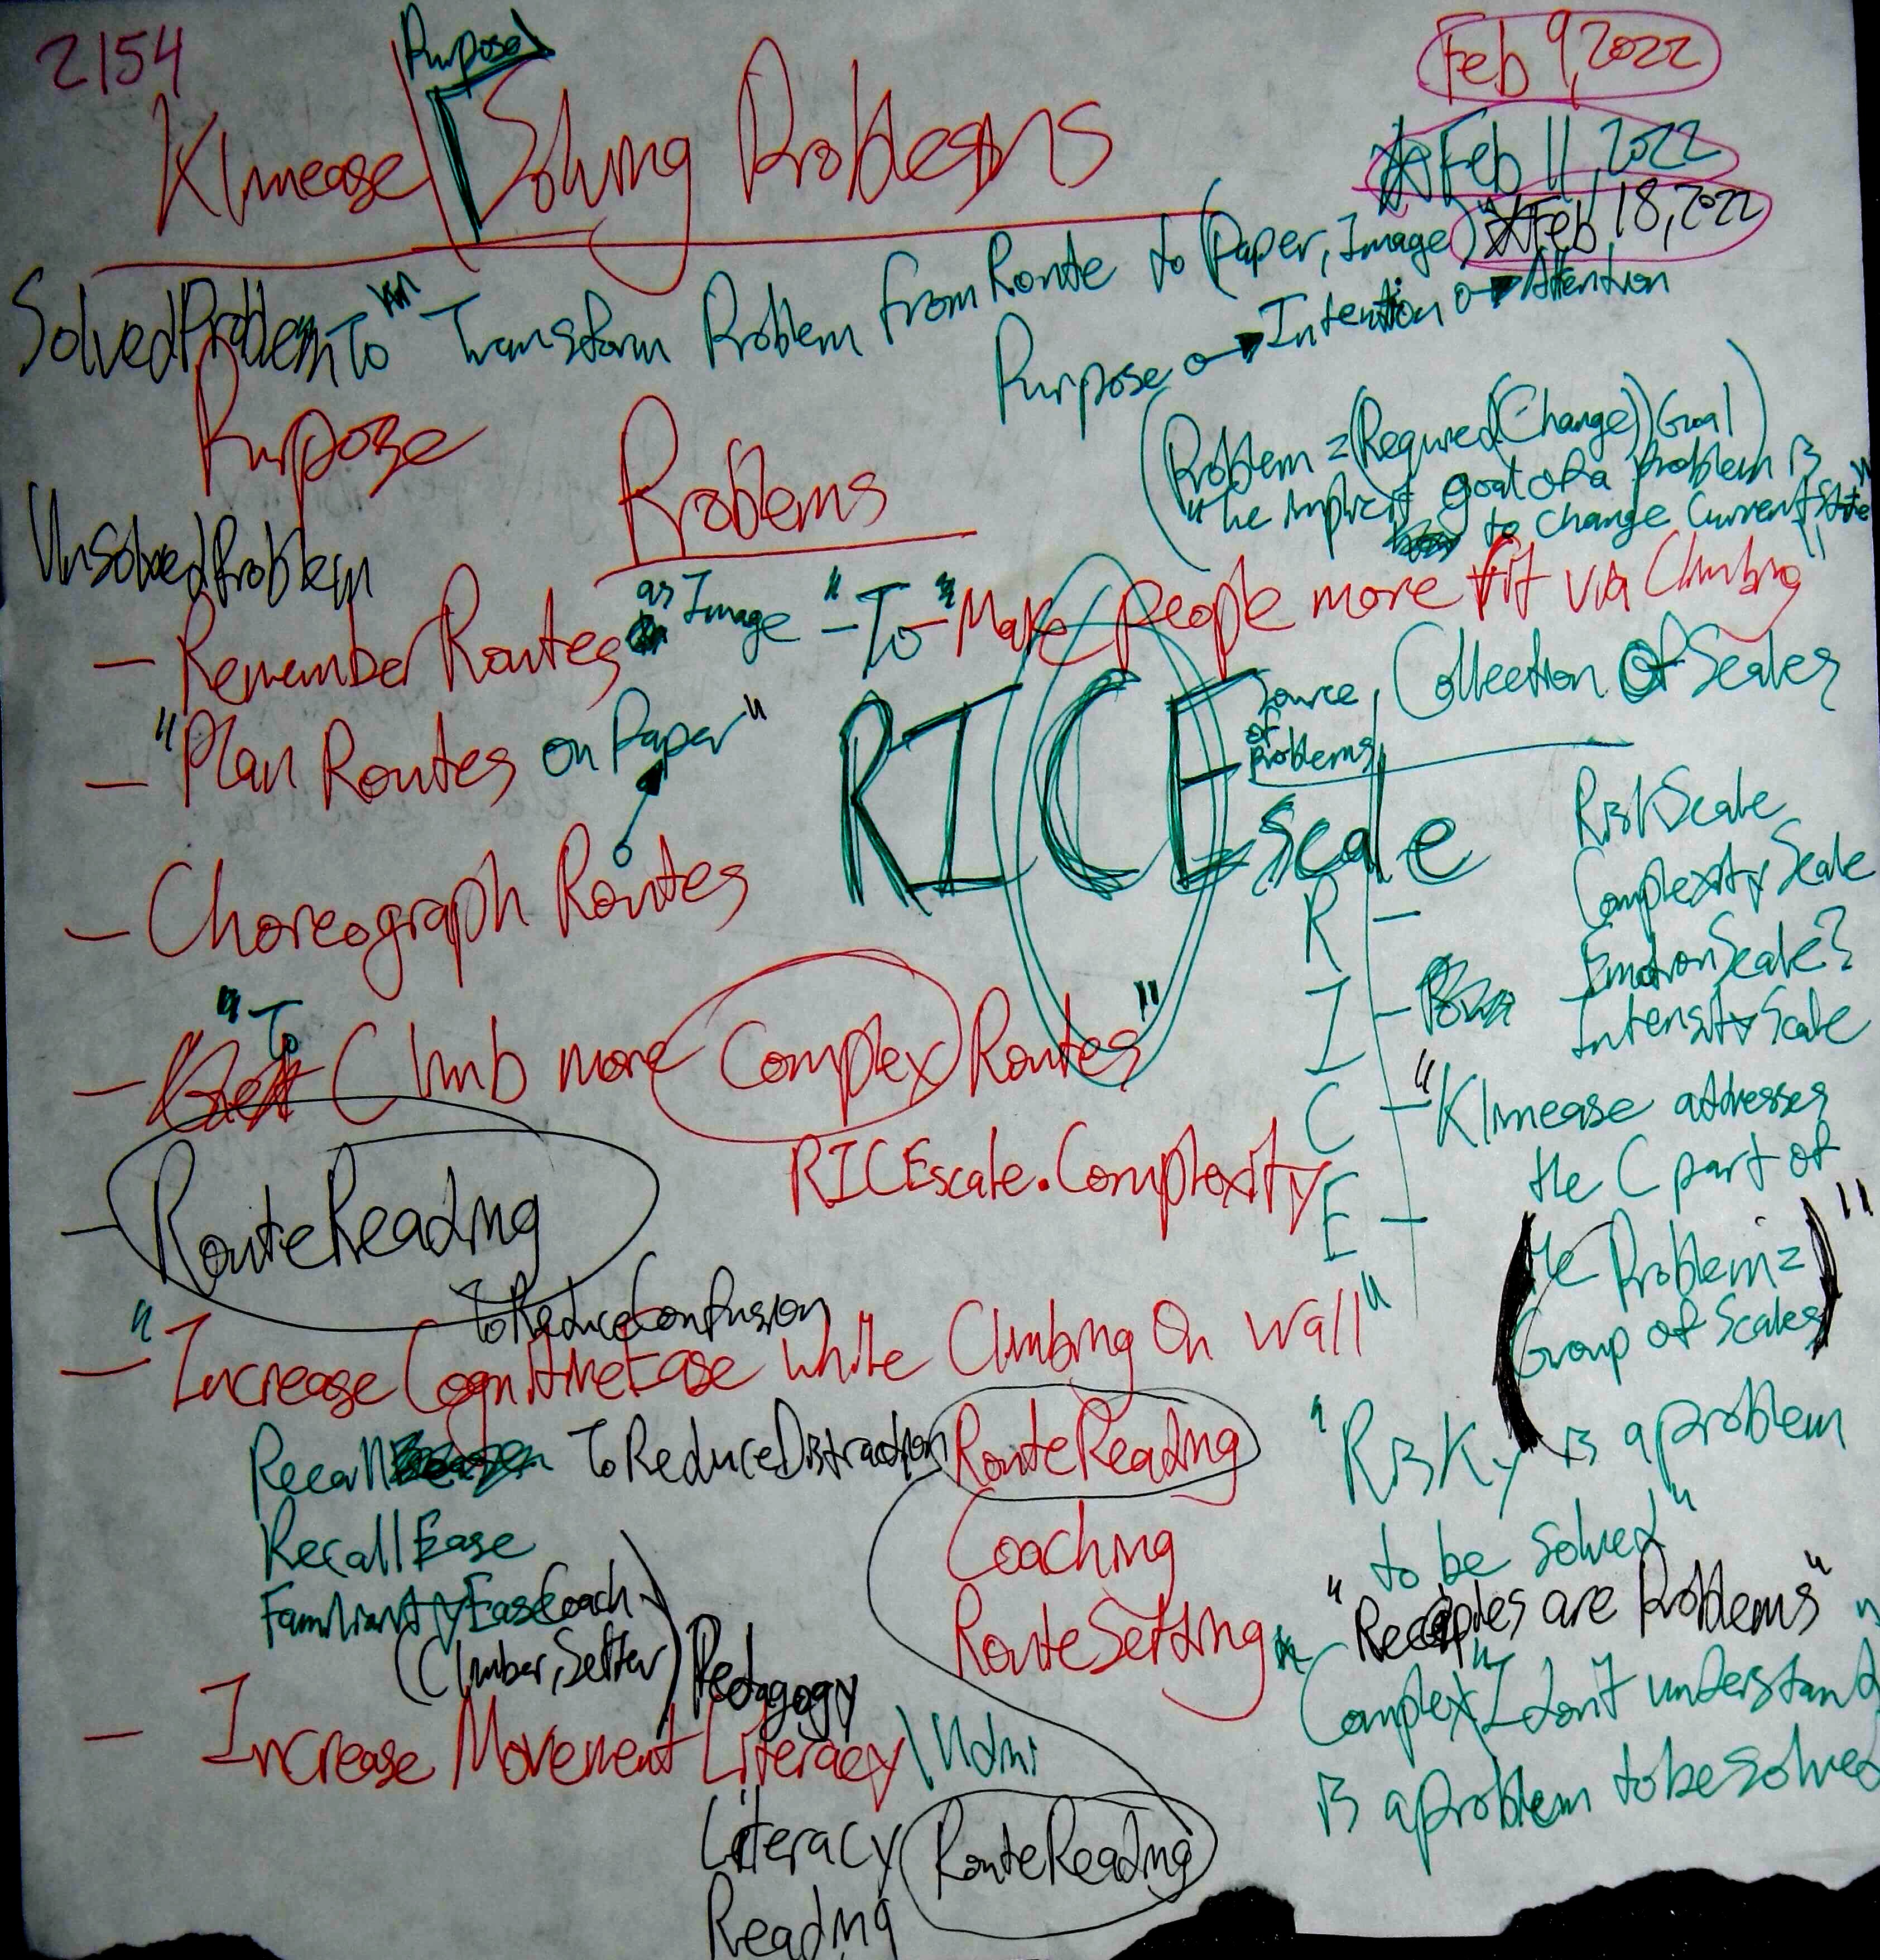 2154
Purpose
Feb 9, 2022
Klimease Solving Problems
Feb 11, 2022
Feb 18, 2022
SolvedProblem To "Transform Problem from Route to (Paper, Image)"
Purpose Intention Attention
Purpose
Problems
(Problem = (Required(Change)) Goal)
"the implicit goal of a problem is
to change Current State"
UnsolvedProblem
- Remember Routes as Image "-To-" Make people more fit via Climbing"
- "Plan Routes on Paper"
RICE scale
Source of Problems
Collection Of Scales
RiskScale
Complexity Scale
EmotionScale?
Intensity Scale
- Choreograph Routes
R -
I -
C - "Klimease addresses
the C part of
the Problem =
Group of Scales"
E -
- "To Climb more Complex Routes"
RICEscale.Complexity
- RouteReading
ToReduceConfusion
- "Increase CognitiveEase while Climbing On Wall"
Recall ToReduceDistraction RouteReading
RecallEase
Coaching
FamiliarityEase Coach
(Climber, Setter) Pedagogy
RouteSetting
"Risky is a problem
to be solved"
"Recipies are Problems"
"Complex" I don't understand"
is a problem to be solved
- Increase Movement Literacy \ Ndmi
Literacy RouteReading
Reading